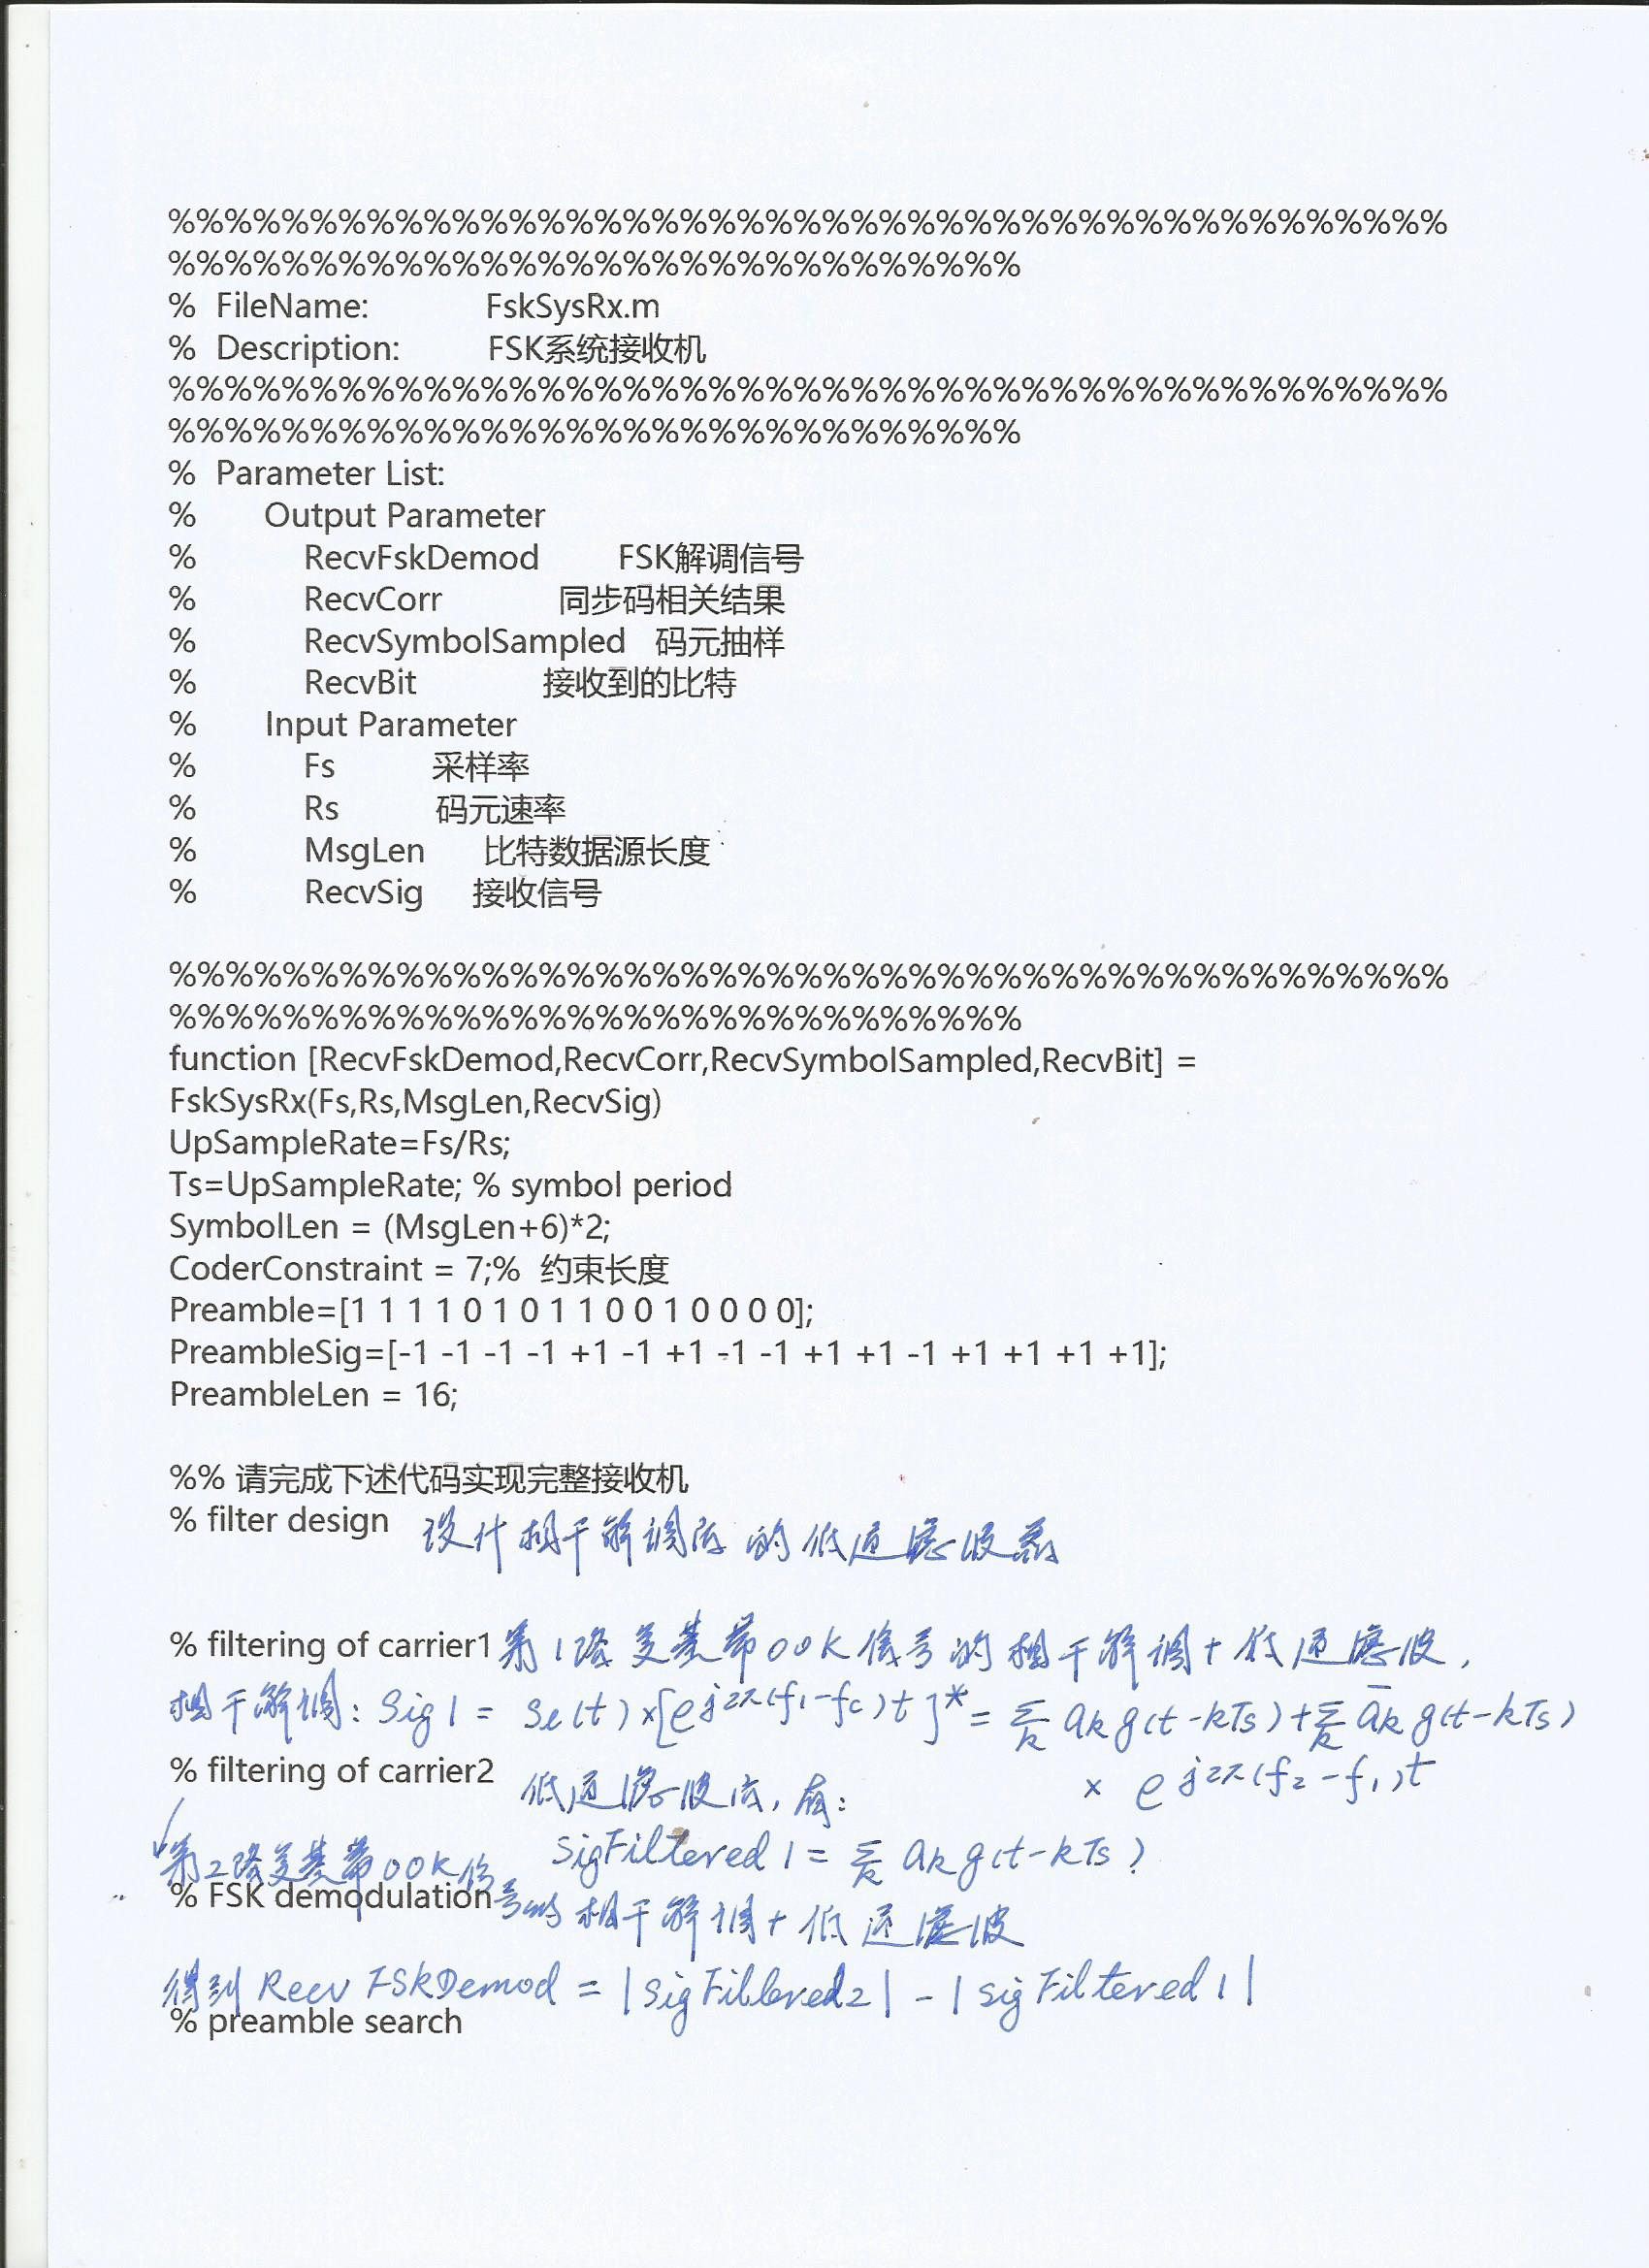 %%%%%%%%%%%%%%%%%%%%%%%%%%%%%%%%%%%%%%%%%%%%%
%%%%%%%%%%%%%%%%%%%%%%%%%%%%%%
% FileName: FskSysRx.m
% Description: FSK系统接收机
%%%%%%%%%%%%%%%%%%%%%%%%%%%%%%%%%%%%%%%%%%%%%
%%%%%%%%%%%%%%%%%%%%%%%%%%%%%%
% Parameter List:
% Output Parameter
% RecvFskDemod FSK解调信号
% RecvCorr 同步码相关结果
% RecvSymbolSampled 码元抽样
% RecvBit 接收到的比特
% Input Parameter
% Fs 采样率
% Rs 码元速率
% MsgLen 比特数据源长度
% RecvSig 接收信号
%%%%%%%%%%%%%%%%%%%%%%%%%%%%%%%%%%%%%%%%%%%%%
%%%%%%%%%%%%%%%%%%%%%%%%%%%%%%
function [RecvFskDemod,RecvCorr,RecvSymbolSampled,RecvBit] =
FskSysRx(Fs,Rs,MsgLen,RecvSig)
UpSampleRate=Fs/Rs;
Ts=UpSampleRate; % symbol period
SymbolLen = (MsgLen+6)*2;
CoderConstraint = 7;% 约束长度
Preamble=[1 1 1 1 0 1 0 1 1 0 0 1 0 0 0 0];
PreambleSig=[-1 -1 -1 -1 +1 -1 +1 -1 -1 +1 +1 -1 +1 +1 +1 +1];
PreambleLen = 16;
%% 请完成下述代码实现完整接收机
% filter design 设计相干解调后的低通滤波器
% filtering of carrier1 第1路复基带OOK信号的相干解调+低通滤波,
相干解调: Sig1 = Se(t)×[e^j2π(f1-fc)t]* = Σk ak g(t-kTs)+Σk āk g(t-kTs)
× e^j2π(f2-f1)t
% filtering of carrier2 低通滤波后,有:
SigFiltered1 = Σk ak g(t-kTs)
第2路复基带OOK信号的相干解调+低通滤波
% FSK demodulation
得到 Recv FSkDemod = |sigFiltered2| - |sigFiltered1|
% preamble search